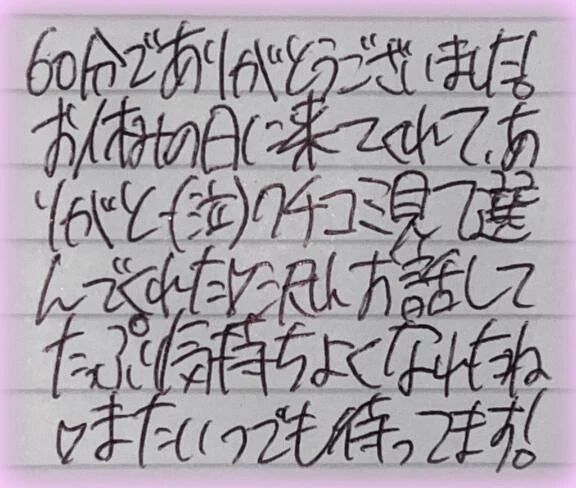 60分でありがとうございました!
お休みの日に来てくれて、あ
りがと〜(泣)クチコミ見て選
んでくれたし沢山お話して
たっぷり気持ちよくなれたね
♡またいつでも待ってます!